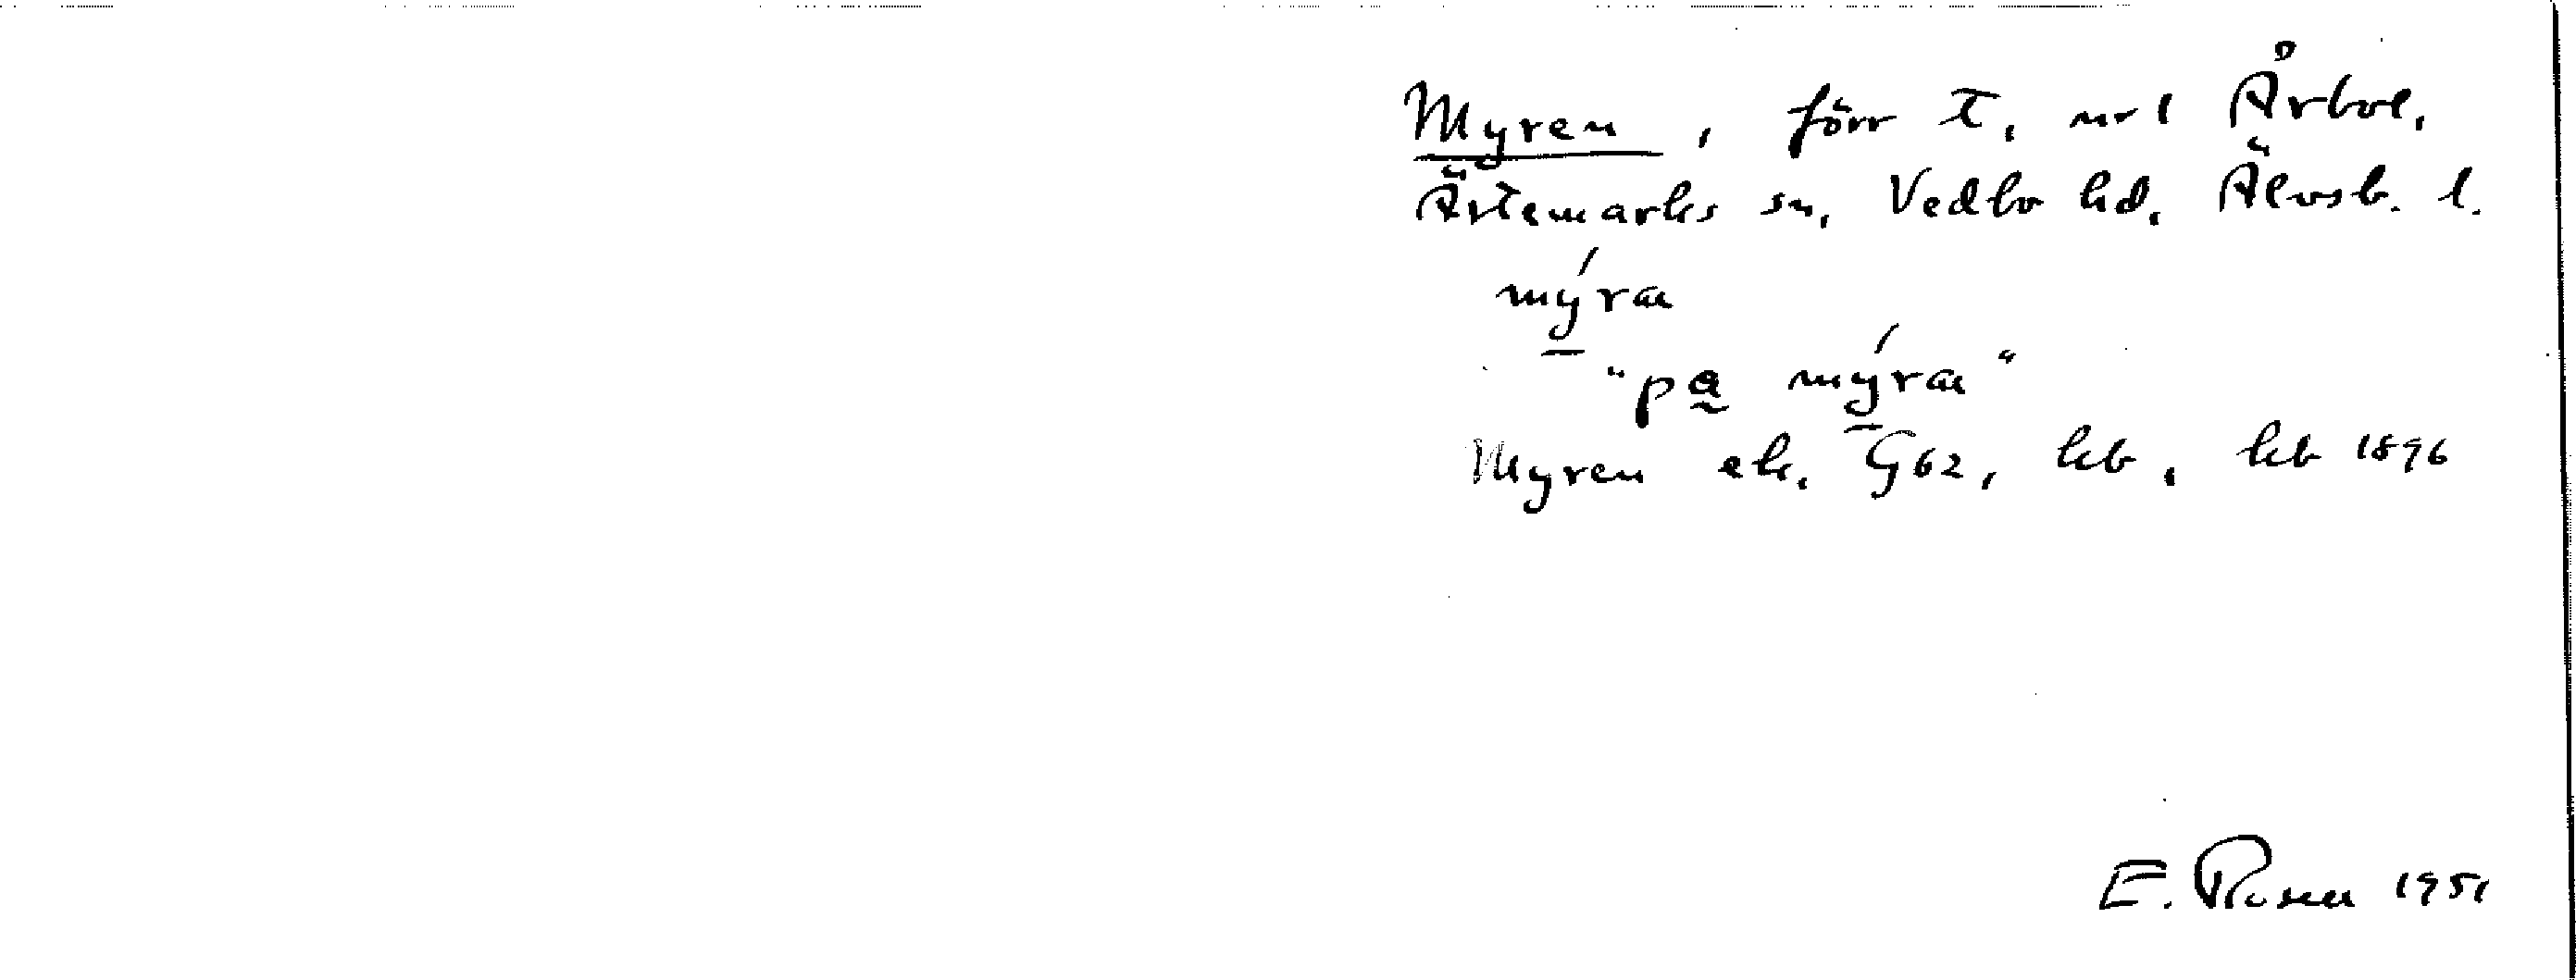 Myren, förr t. nr 1 Årbol.
Ärtemarks sn, Vedbo hd. Älvsb. l.
mýra
"pa mýra"
Myren ek. G62, hb, kb 1896
E. Rosen 1951